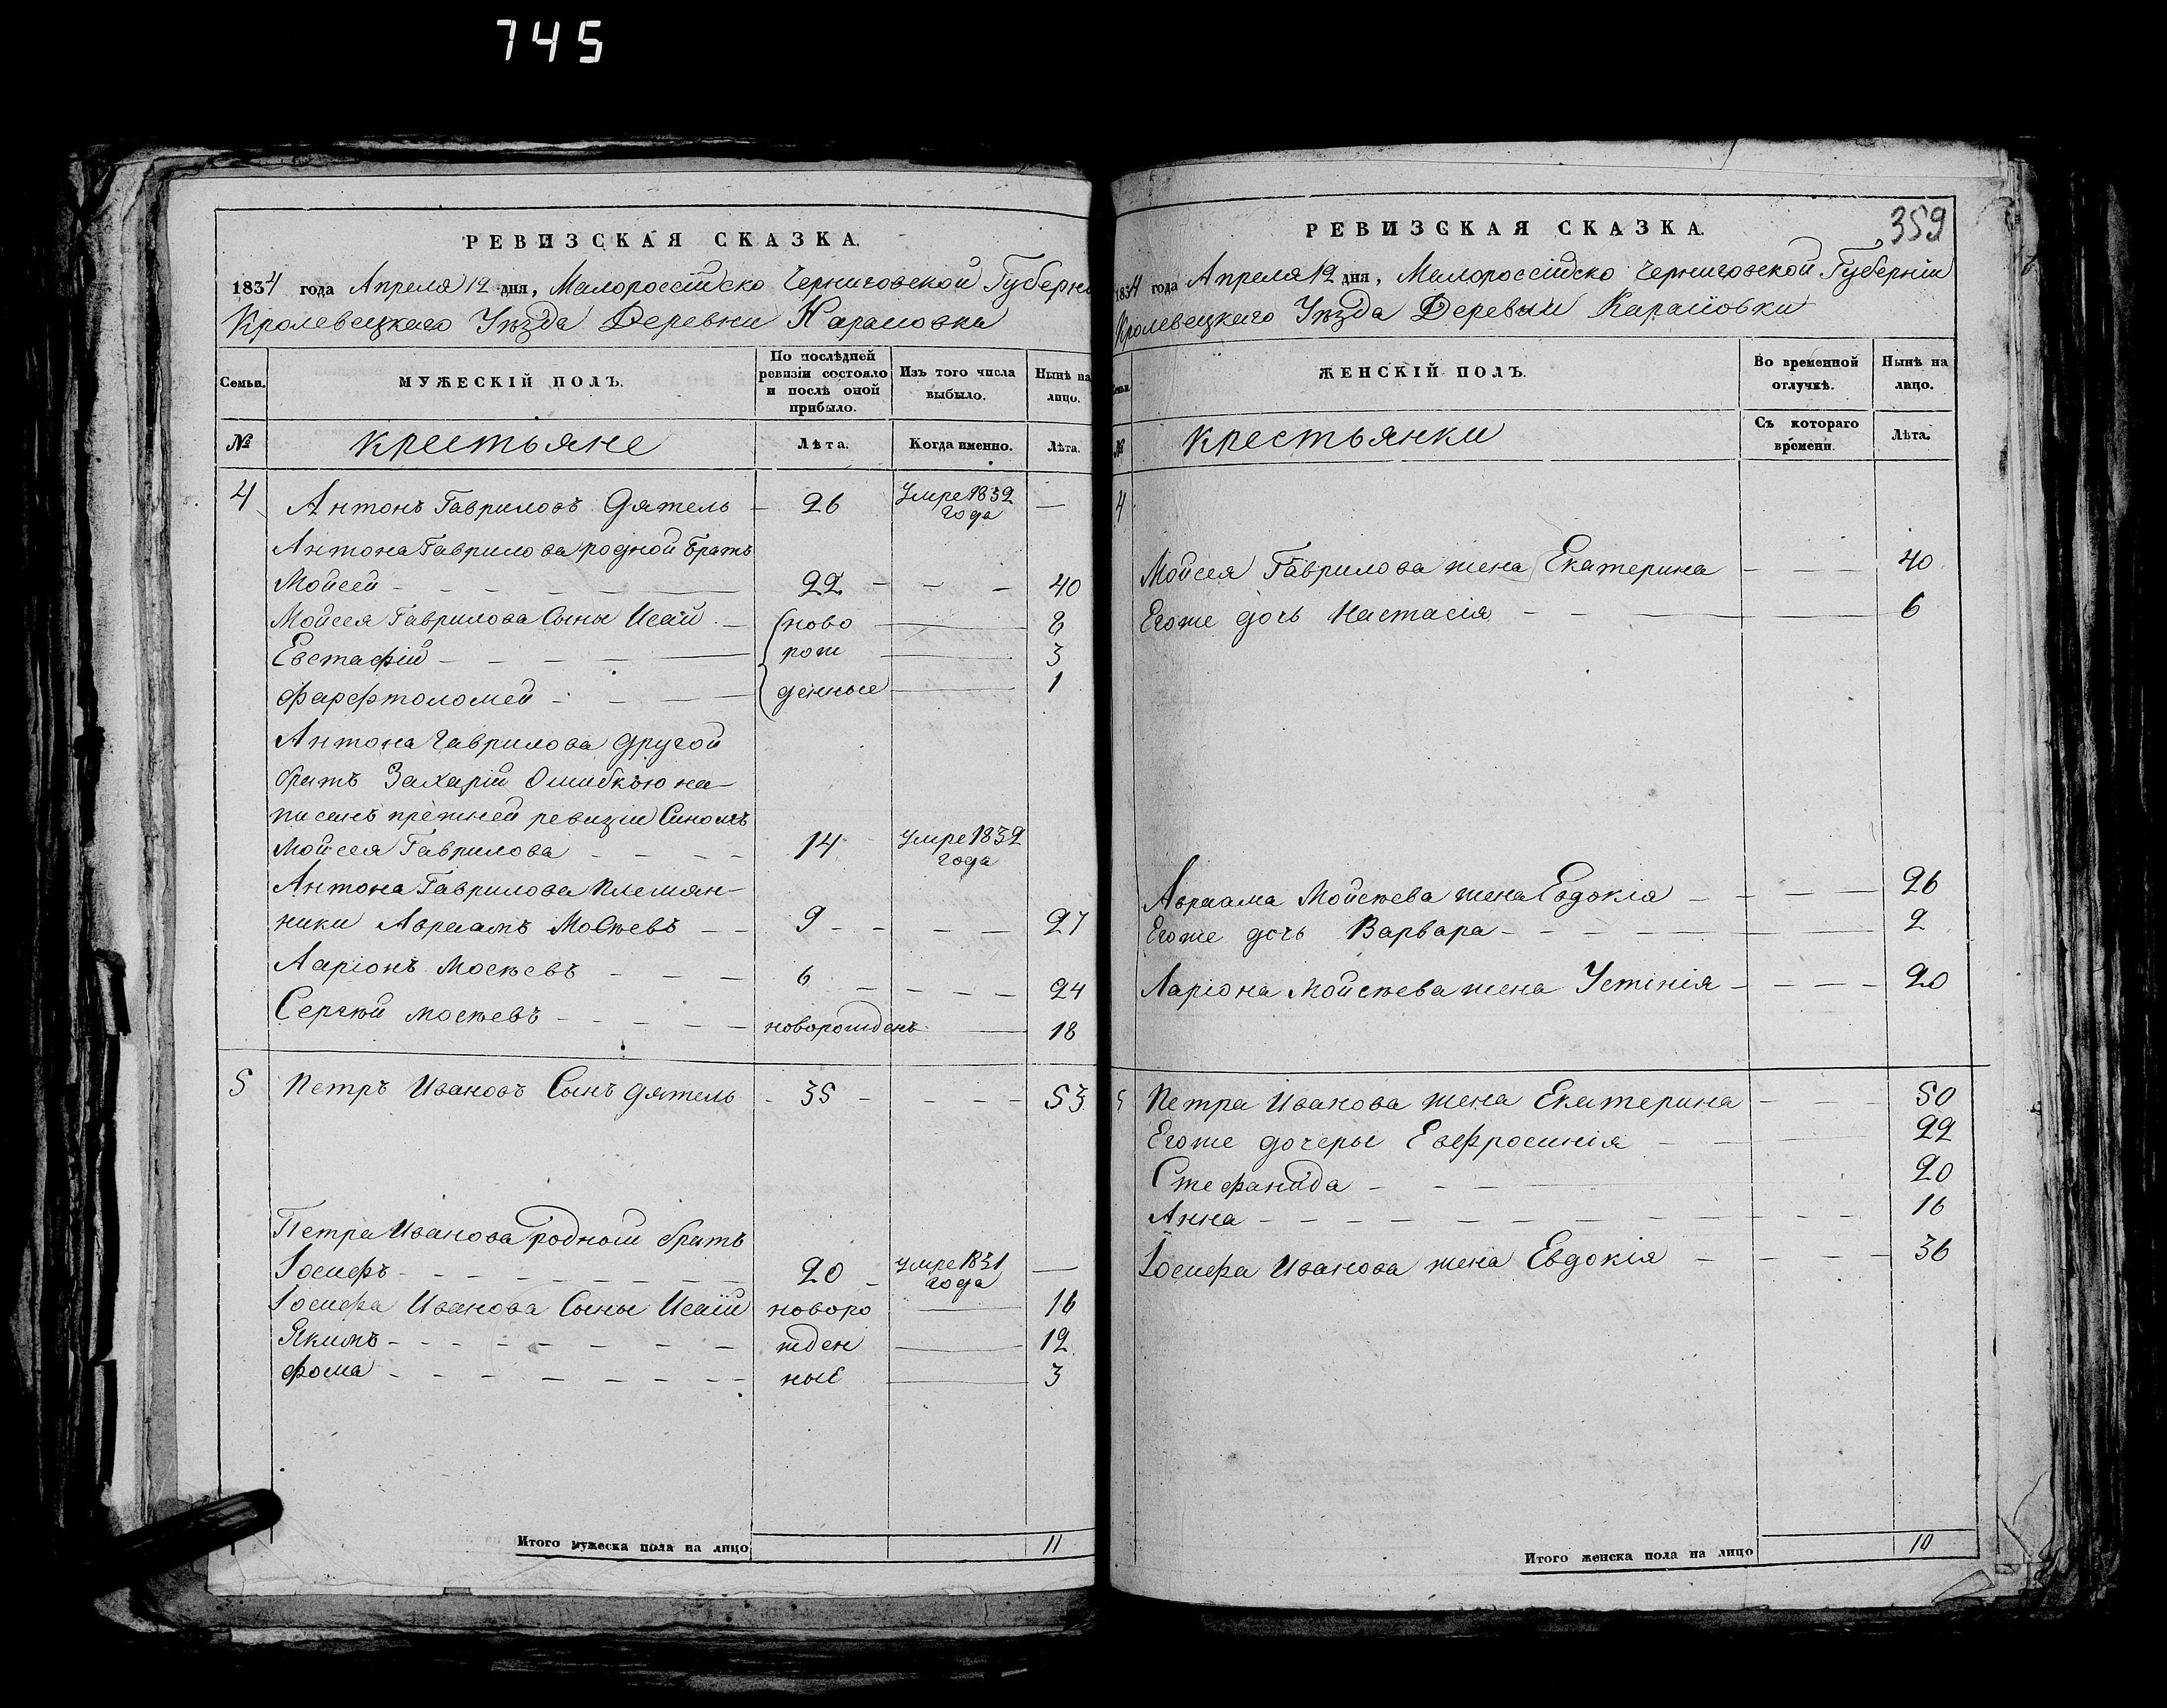 745
РЕВИЗСКАЯ СКАЗКА.
1834 года Апреля 12 дня, Малороссійско Черниговской Губерн
Кролевецкаго Уѣзда Деревни Карановки
Семьи.
МУЖЕСКІЙ ПОЛЪ.
По послѣдней ревизіи состояло и послѣ оной прибыло.
Изъ того числа выбыло.
Нынѣ на лицо.
№
крестьяне
Лѣта.
Когда именно.
Лѣта.
4 Антонъ Гавриловъ Дятель — 26 Умре 1832 года —
Антона Гаврилова родной братъ
Мойсей — 22 — 40
Мойсея Гаврилова Сыны Исай — ново — 8
Евстафій — рож — 3
Фарфтоломей — денные — 1
Антона Гаврилова другой
братъ Захарій Ошибкъю на-
писанъ прежней ревизіи Синомъ
Мойсея Гаврилова — 14 Умре 1832 года
Антона Гаврилова племян-
ники Авраамъ Мосѣевъ — 9 — 27
Ларіонъ Мосѣевъ — 6 — 24
Сергѣй Мосѣевъ — новорожденъ — 18
5 Петръ Ивановъ Сынъ Дятель — 35 — 53
Петра Иванова родной братъ
Іосифъ — 20 — Умре 1831 года —
Іосифа Иванова Сыны Исаій новоро — 16
Якимъ — жден — 12
Фома — ные — 3
Итого мужеска пола на лицо 11
359
РЕВИЗСКАЯ СКАЗКА.
1834 года Апреля 12 дня, Малороссійско Черниговской Губерніи
Кролевецкаго Уѣзда Деревни Карановки
ЖЕНСКІЙ ПОЛЪ.
Во временной отлучкѣ.
Нынѣ на лицо.
№
крестьянки
Съ котораго времени.
Лѣта.
4
Мойсея Гаврилова жена Екатерина — 40
Егоже дочь Настасія — 6
Авраама Мойсѣева жена Евдокія — 26
Егоже дочь Варвара — 2
Ларіона Мойсѣева жена Устинія — 20
5 Петра Иванова жена Екатерина — 50
Егоже дочеры Евфросинія — 22
Стефанида — 20
Анна — 16
Іосифа Иванова жена Евдокія — 36
Итого женска пола на лицо 10